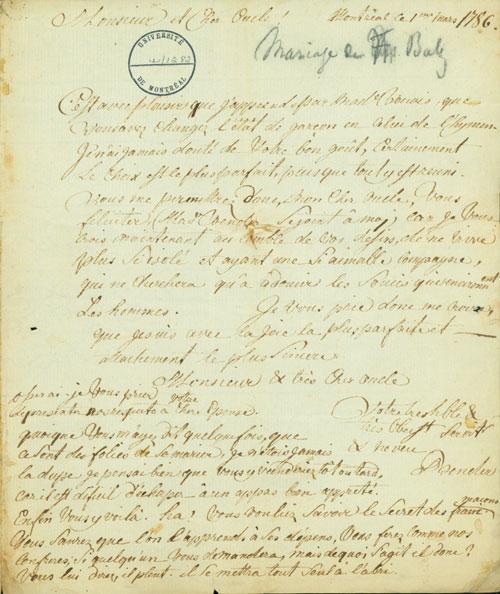 Monsieur et Cher Oncle! Montréal ce 1er mars 1786.
UNIVERSITÉ
DE MONTRÉAL
Mariage de Bab
C'est avec plaisir que j'apprends par Mad que
Vous avez changez l'état de garçon en celui de l'hymen
Je n'ai jamais douté de Votre bon goût, Certainement
Le choix est le plus parfait, puisque tout y est réuni.
Vous me permettrez, donc, mon Cher Oncle, Vous
feliciter, Se joint à moi; car je Vous
vois maintenant au comble de vos desirs, de ne vivre
plus Si isolé et ayant une Si aimable compagne,
qui ne cherchera qu'a adoucir les Soucis qui environnent
Les hommes. Je Vous prie donc me croire
que je suis avec la joie la plus parfaite et
attachement le plus Sincere
Monsieur & très Cher Oncle
oserai-je Vous prier votre
de presenter nos respects à Epouse
Votre &
très Obeisst Servt
& neveu
quoique Vous m'ayez dit quelquefois, que
ce sont des folies de Se marier, je n'etois jamais
la dupe je pensai bien que vous y viendriez tot ou tard,
car il est dificil d'echaper à un appas bon appreté.
Enfin Vous y voilà. ha! Vous vouliez Savoir le Secret des francs maçons
Vous Saurez que l'on l'apprend à Ses dépens, Vous ferez comme nos
confreres; Si quelqu'un Vous demandera, mais de quoi S'agit il donc?
Vous lui direz, il pleut. il Se mettra tout Seul à l'abri.